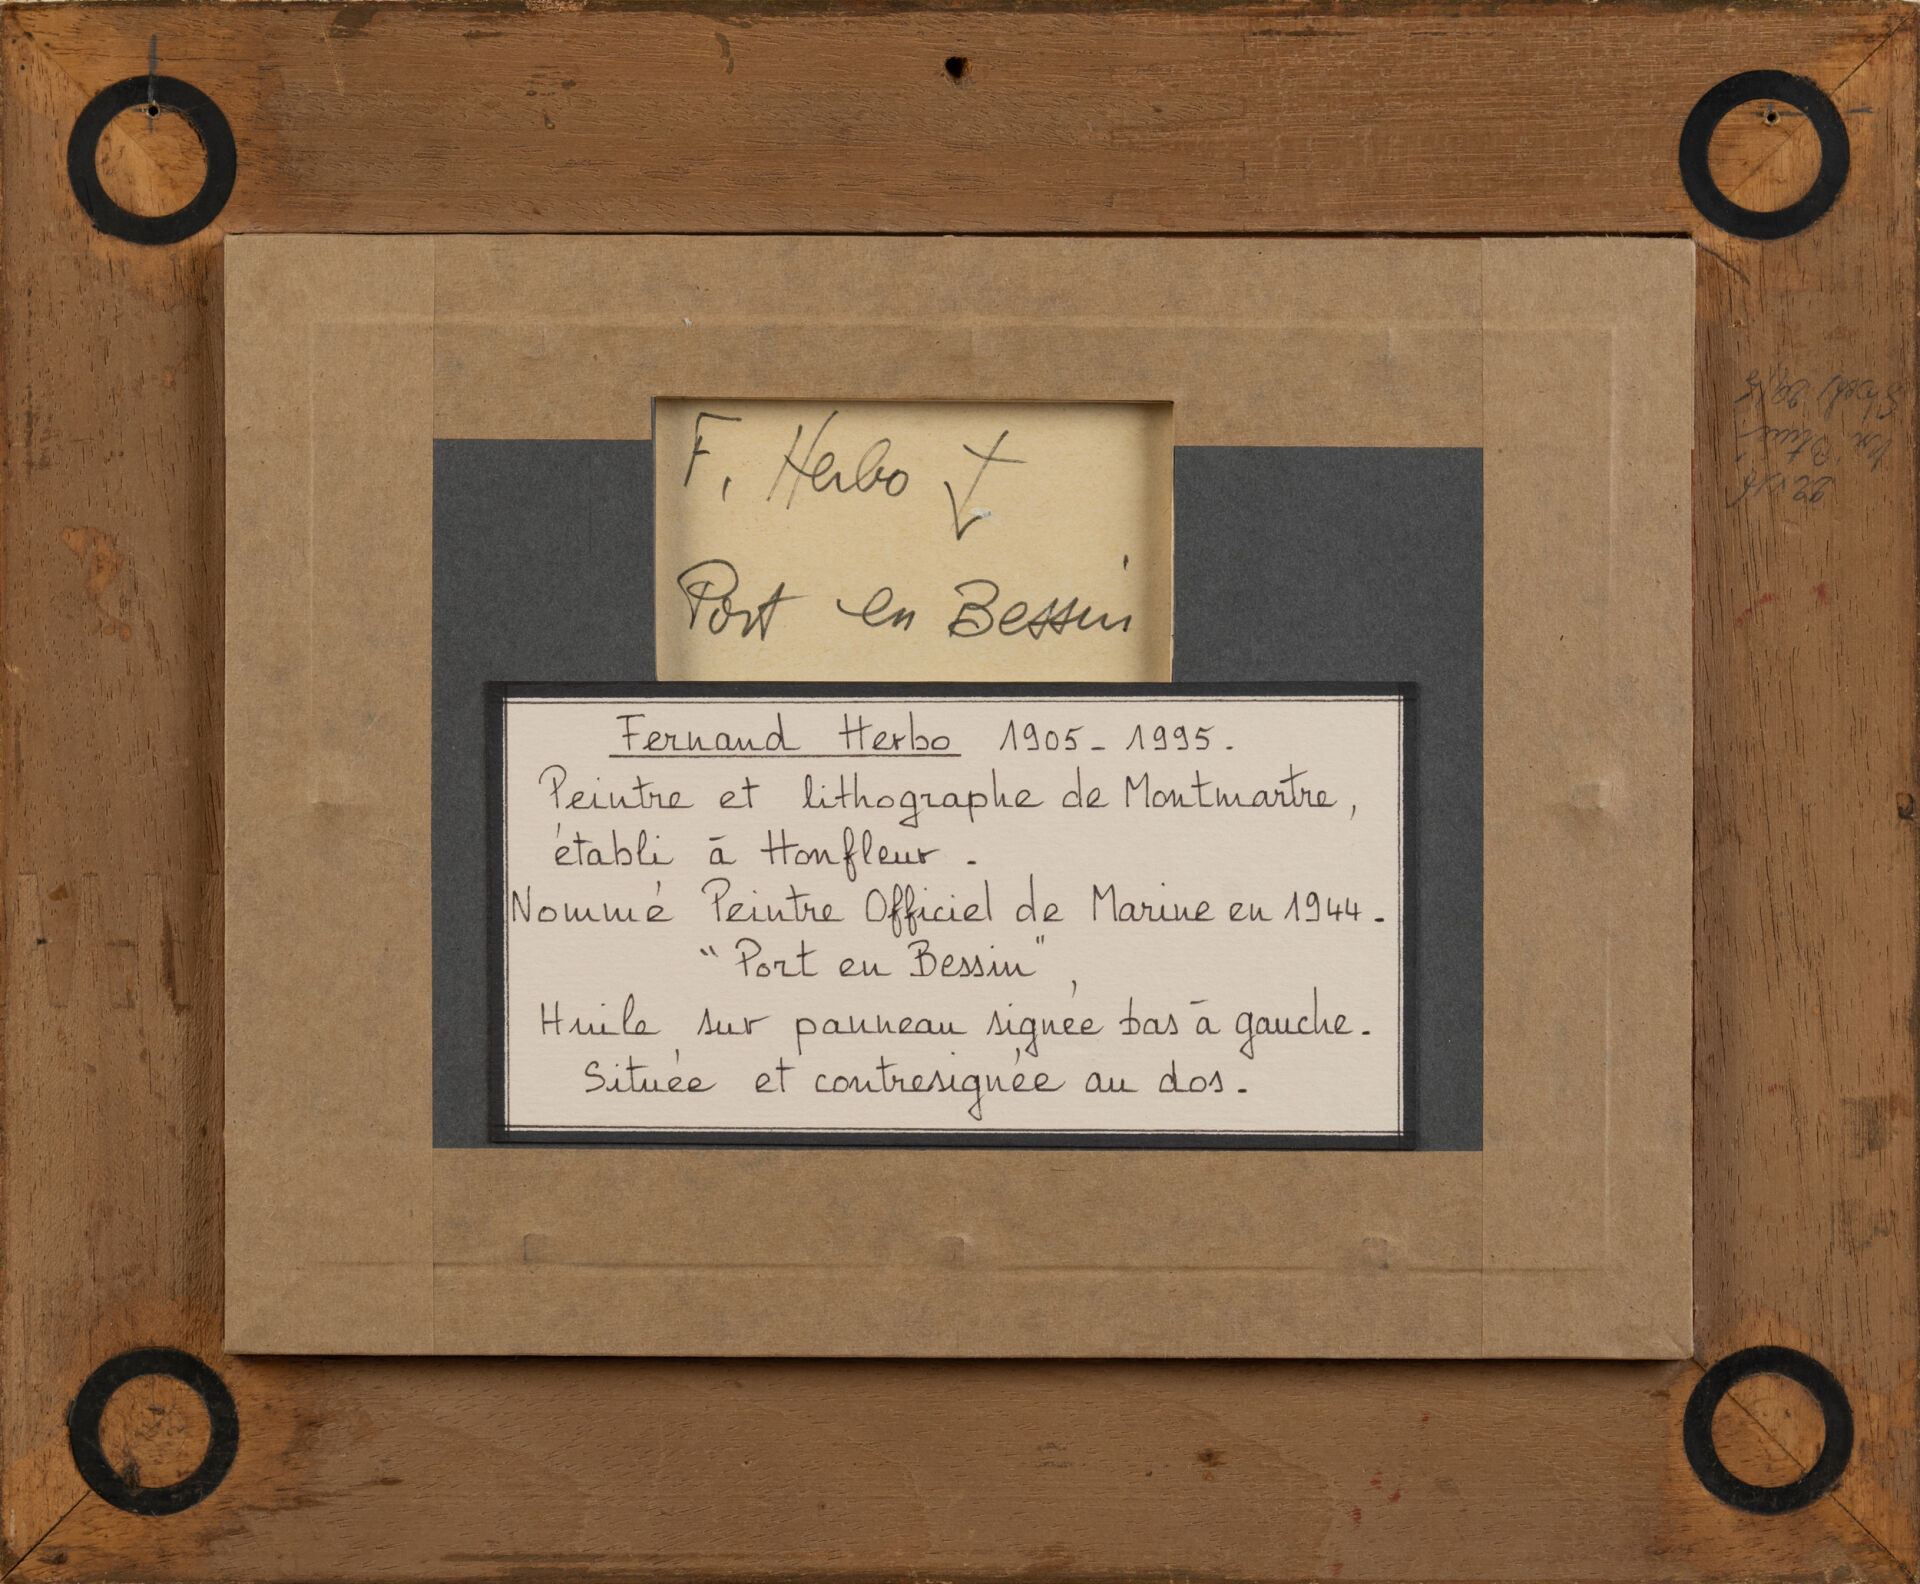 F. Herbo
Port en Bessin
Fernand Herbo 1905 - 1995.
Peintre et lithographe de Montmartre,
établi à Honfleur.
Nommé Peintre Officiel de Marine en 1944.
"Port en Bessin",
Huile sur panneau signée bas à gauche.
Située et contresignée au dos.